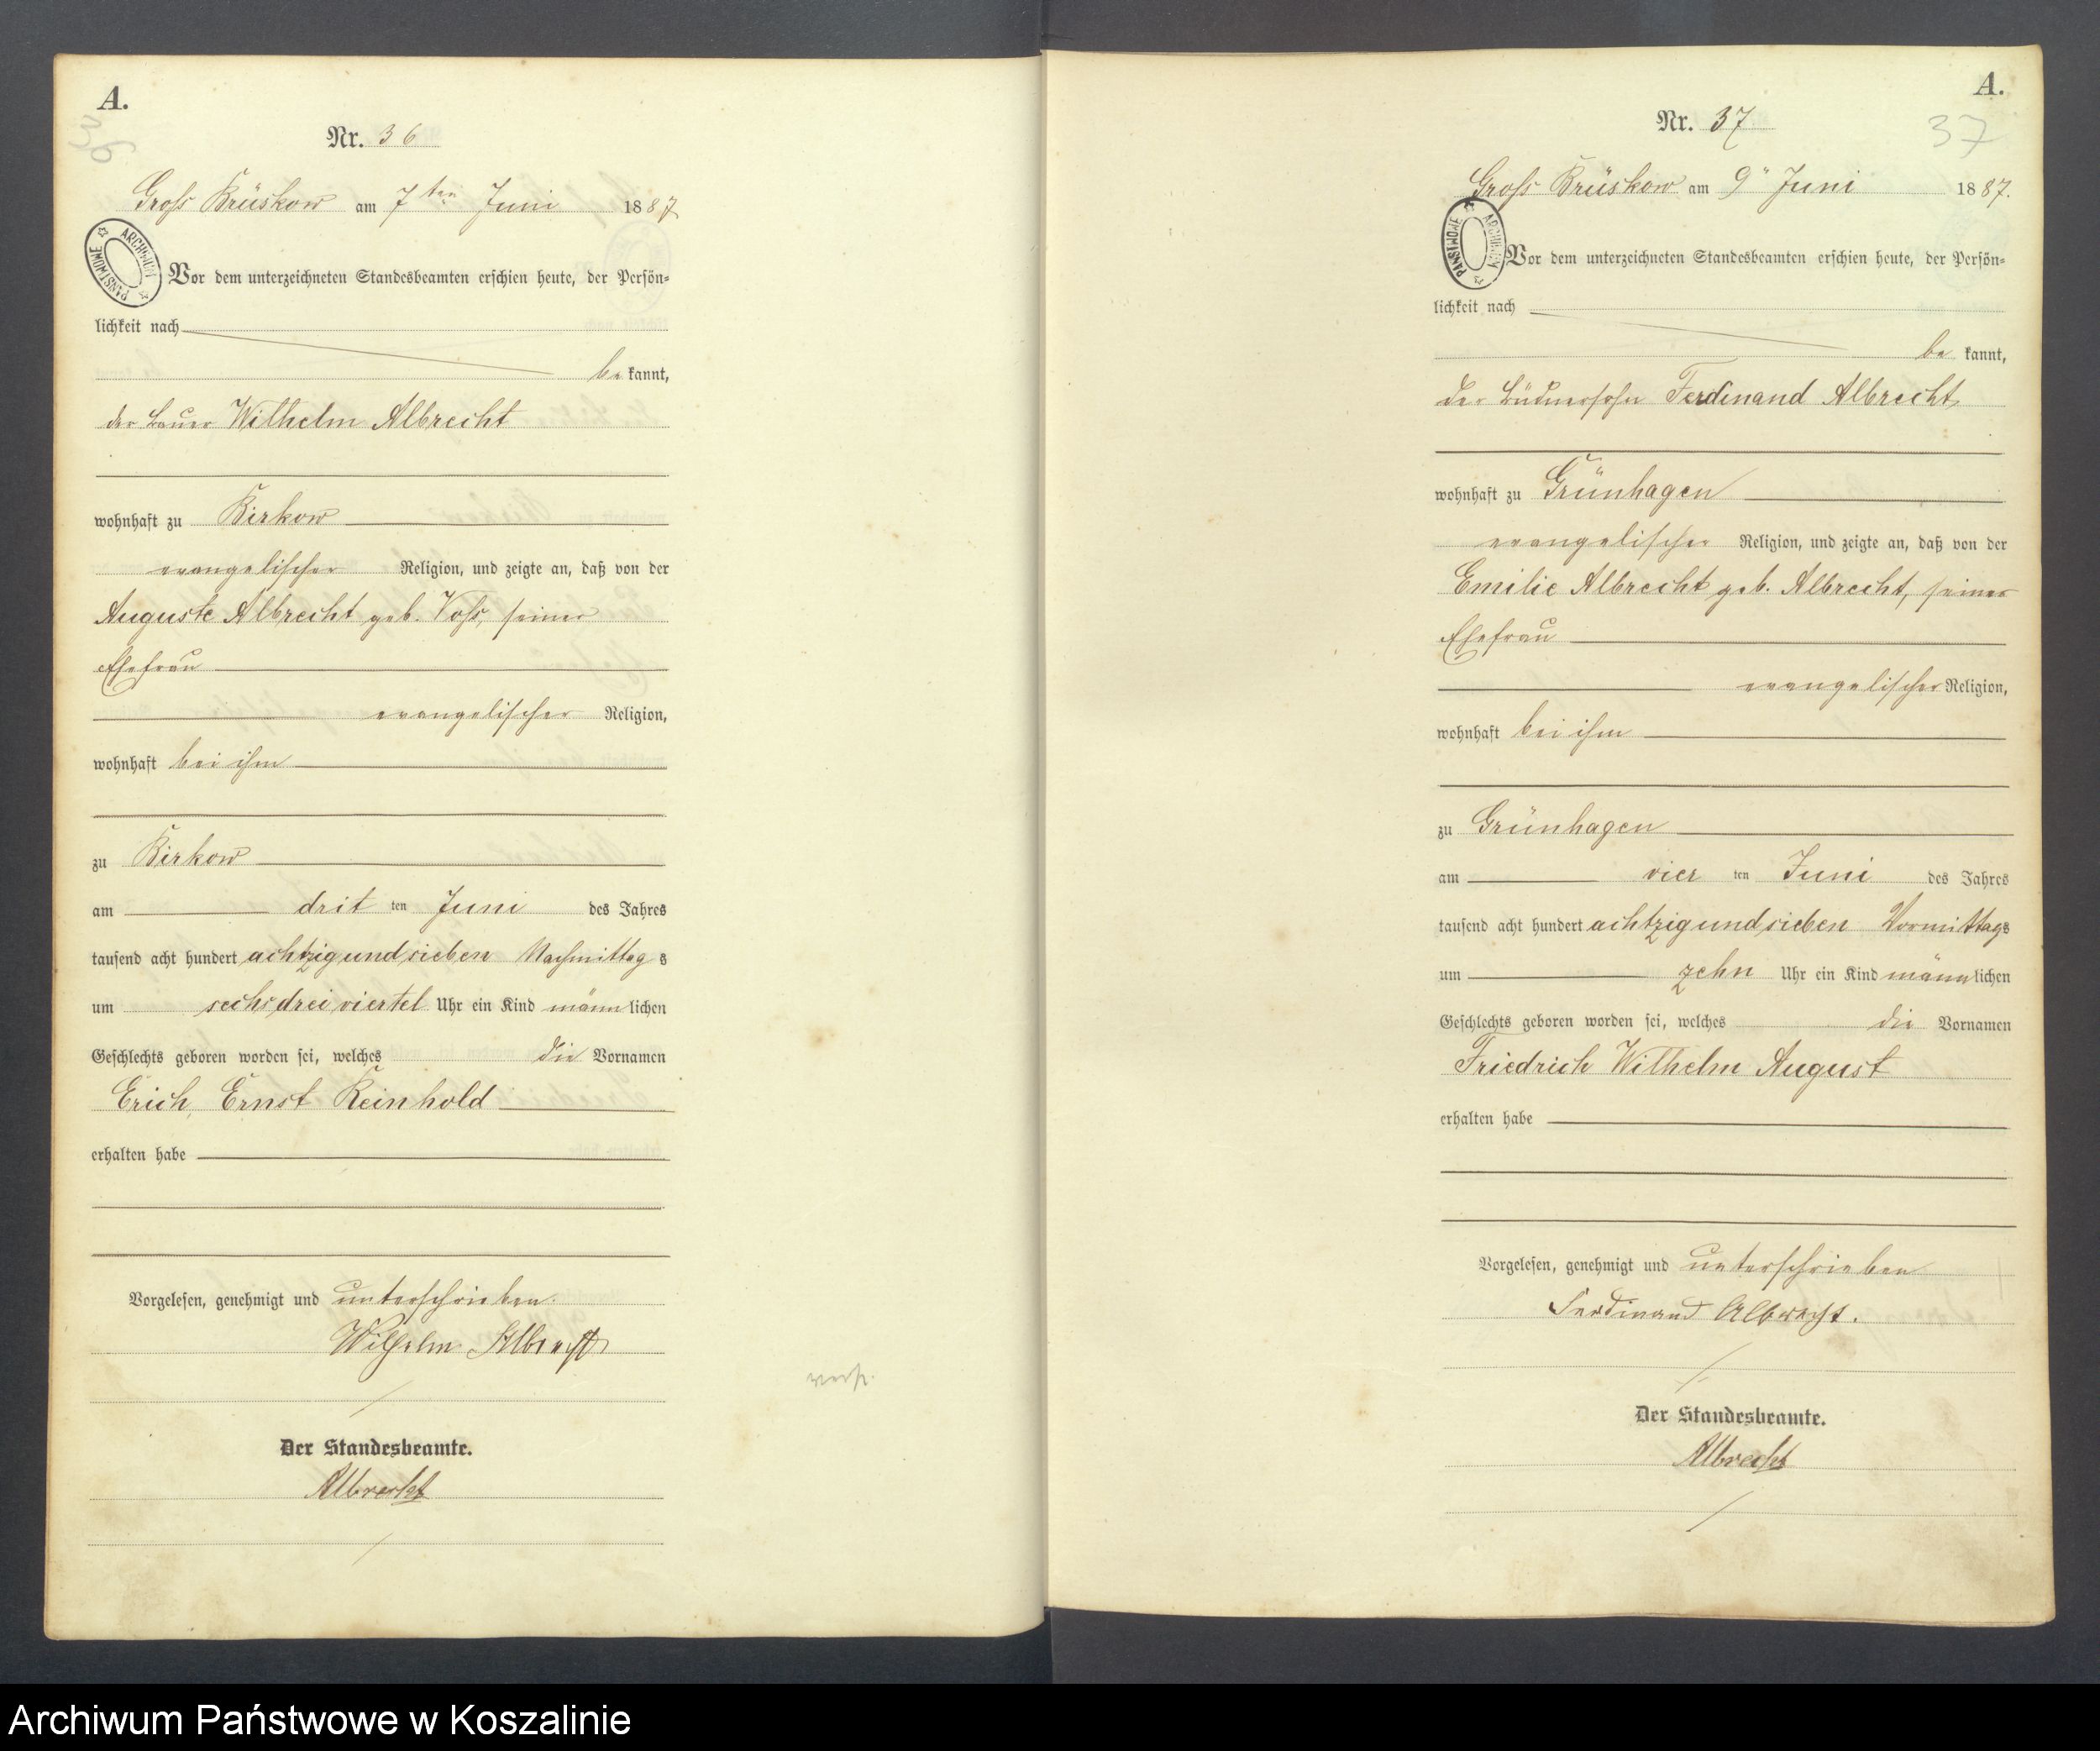 A.
Nr. 36
Gross Brüskow am 7ten Juni 1887
ARCHIWUM PAŃSTWOWE
Vor dem unterzeichneten Standesbeamten erschien heute, der Persön-
lichkeit nach
be kannt,
der Bauer Wilhelm Albrecht
wohnhaft zu Birkow
evangelischer Religion, und zeigte an, daß von der
Auguste Albrecht geb. Voss, seiner
Ehefrau
evangelischer Religion,
wohnhaft bei ihm
zu Birkow
am drit ten Juni des Jahres
tausend acht hundert achtzig und sieben Nachmittag s
um sechs drei viertel Uhr ein Kind männ lichen
Geschlechts geboren worden sei, welches die Vornamen
Erich Ernst Reinhold
erhalten habe
Vorgelesen, genehmigt und unterschrieben.
Wilhelm Albrecht
Der Standesbeamte.
Albrecht
A.
Nr. 37
37
Gross Brüskow am 9" Juni 1887.
ARCHIWUM PAŃSTWOWE
Vor dem unterzeichneten Standesbeamten erschien heute, der Persön-
lichkeit nach
be kannt,
der Büdnersohn Ferdinand Albrecht
wohnhaft zu Grünhagen
evangelischer Religion, und zeigte an, daß von der
Emilie Albrecht geb. Albrecht, seiner
Ehefrau
evangelischer Religion,
wohnhaft bei ihm
zu Grünhagen
am vier ten Juni des Jahres
tausend acht hundert achtzig und sieben Vormittags
um zehn Uhr ein Kind männ lichen
Geschlechts geboren worden sei, welches die Vornamen
Friedrich Wilhelm August
erhalten habe
Vorgelesen, genehmigt und unterschrieben
Ferdinand Albrecht.
Der Standesbeamte.
Albrecht
Archiwum Państwowe w Koszalinie